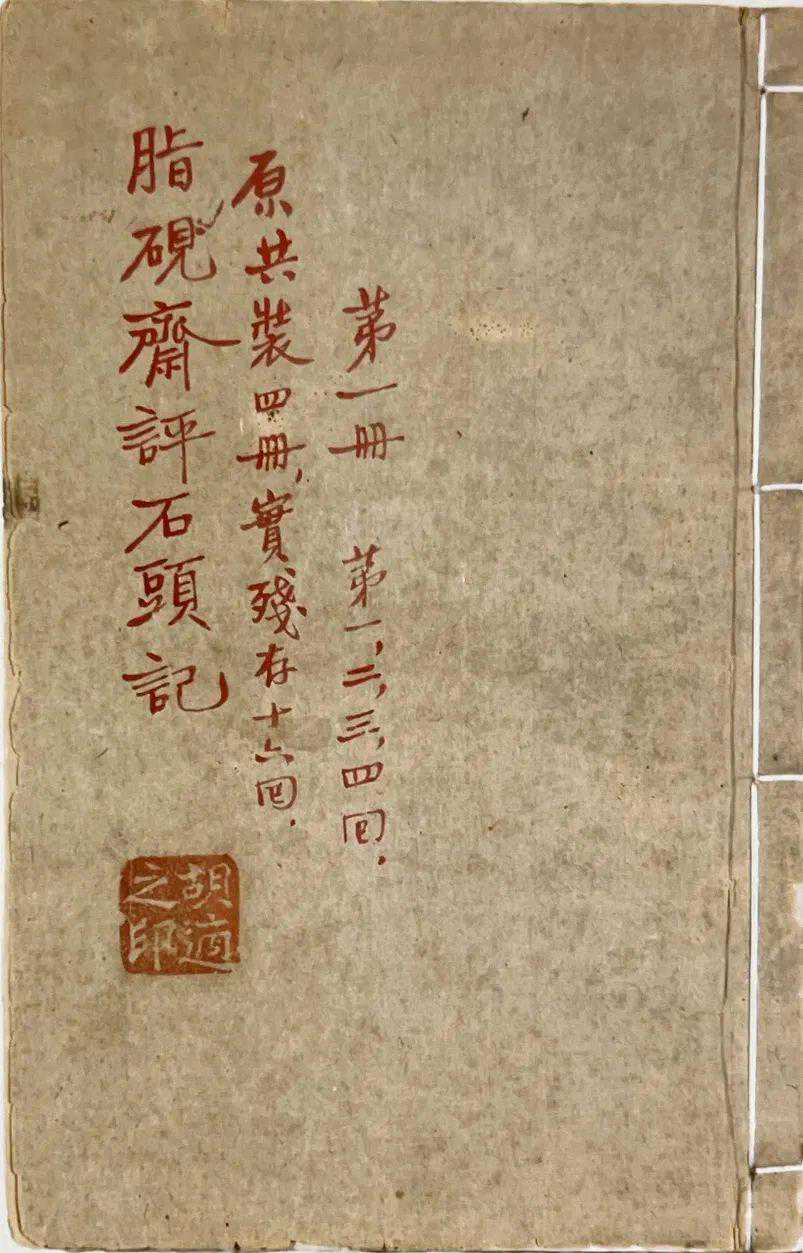 脂硯齋評石頭記
原共裝四冊,實殘存十六回.
第一冊 第一,二,三,四回.
胡適之印